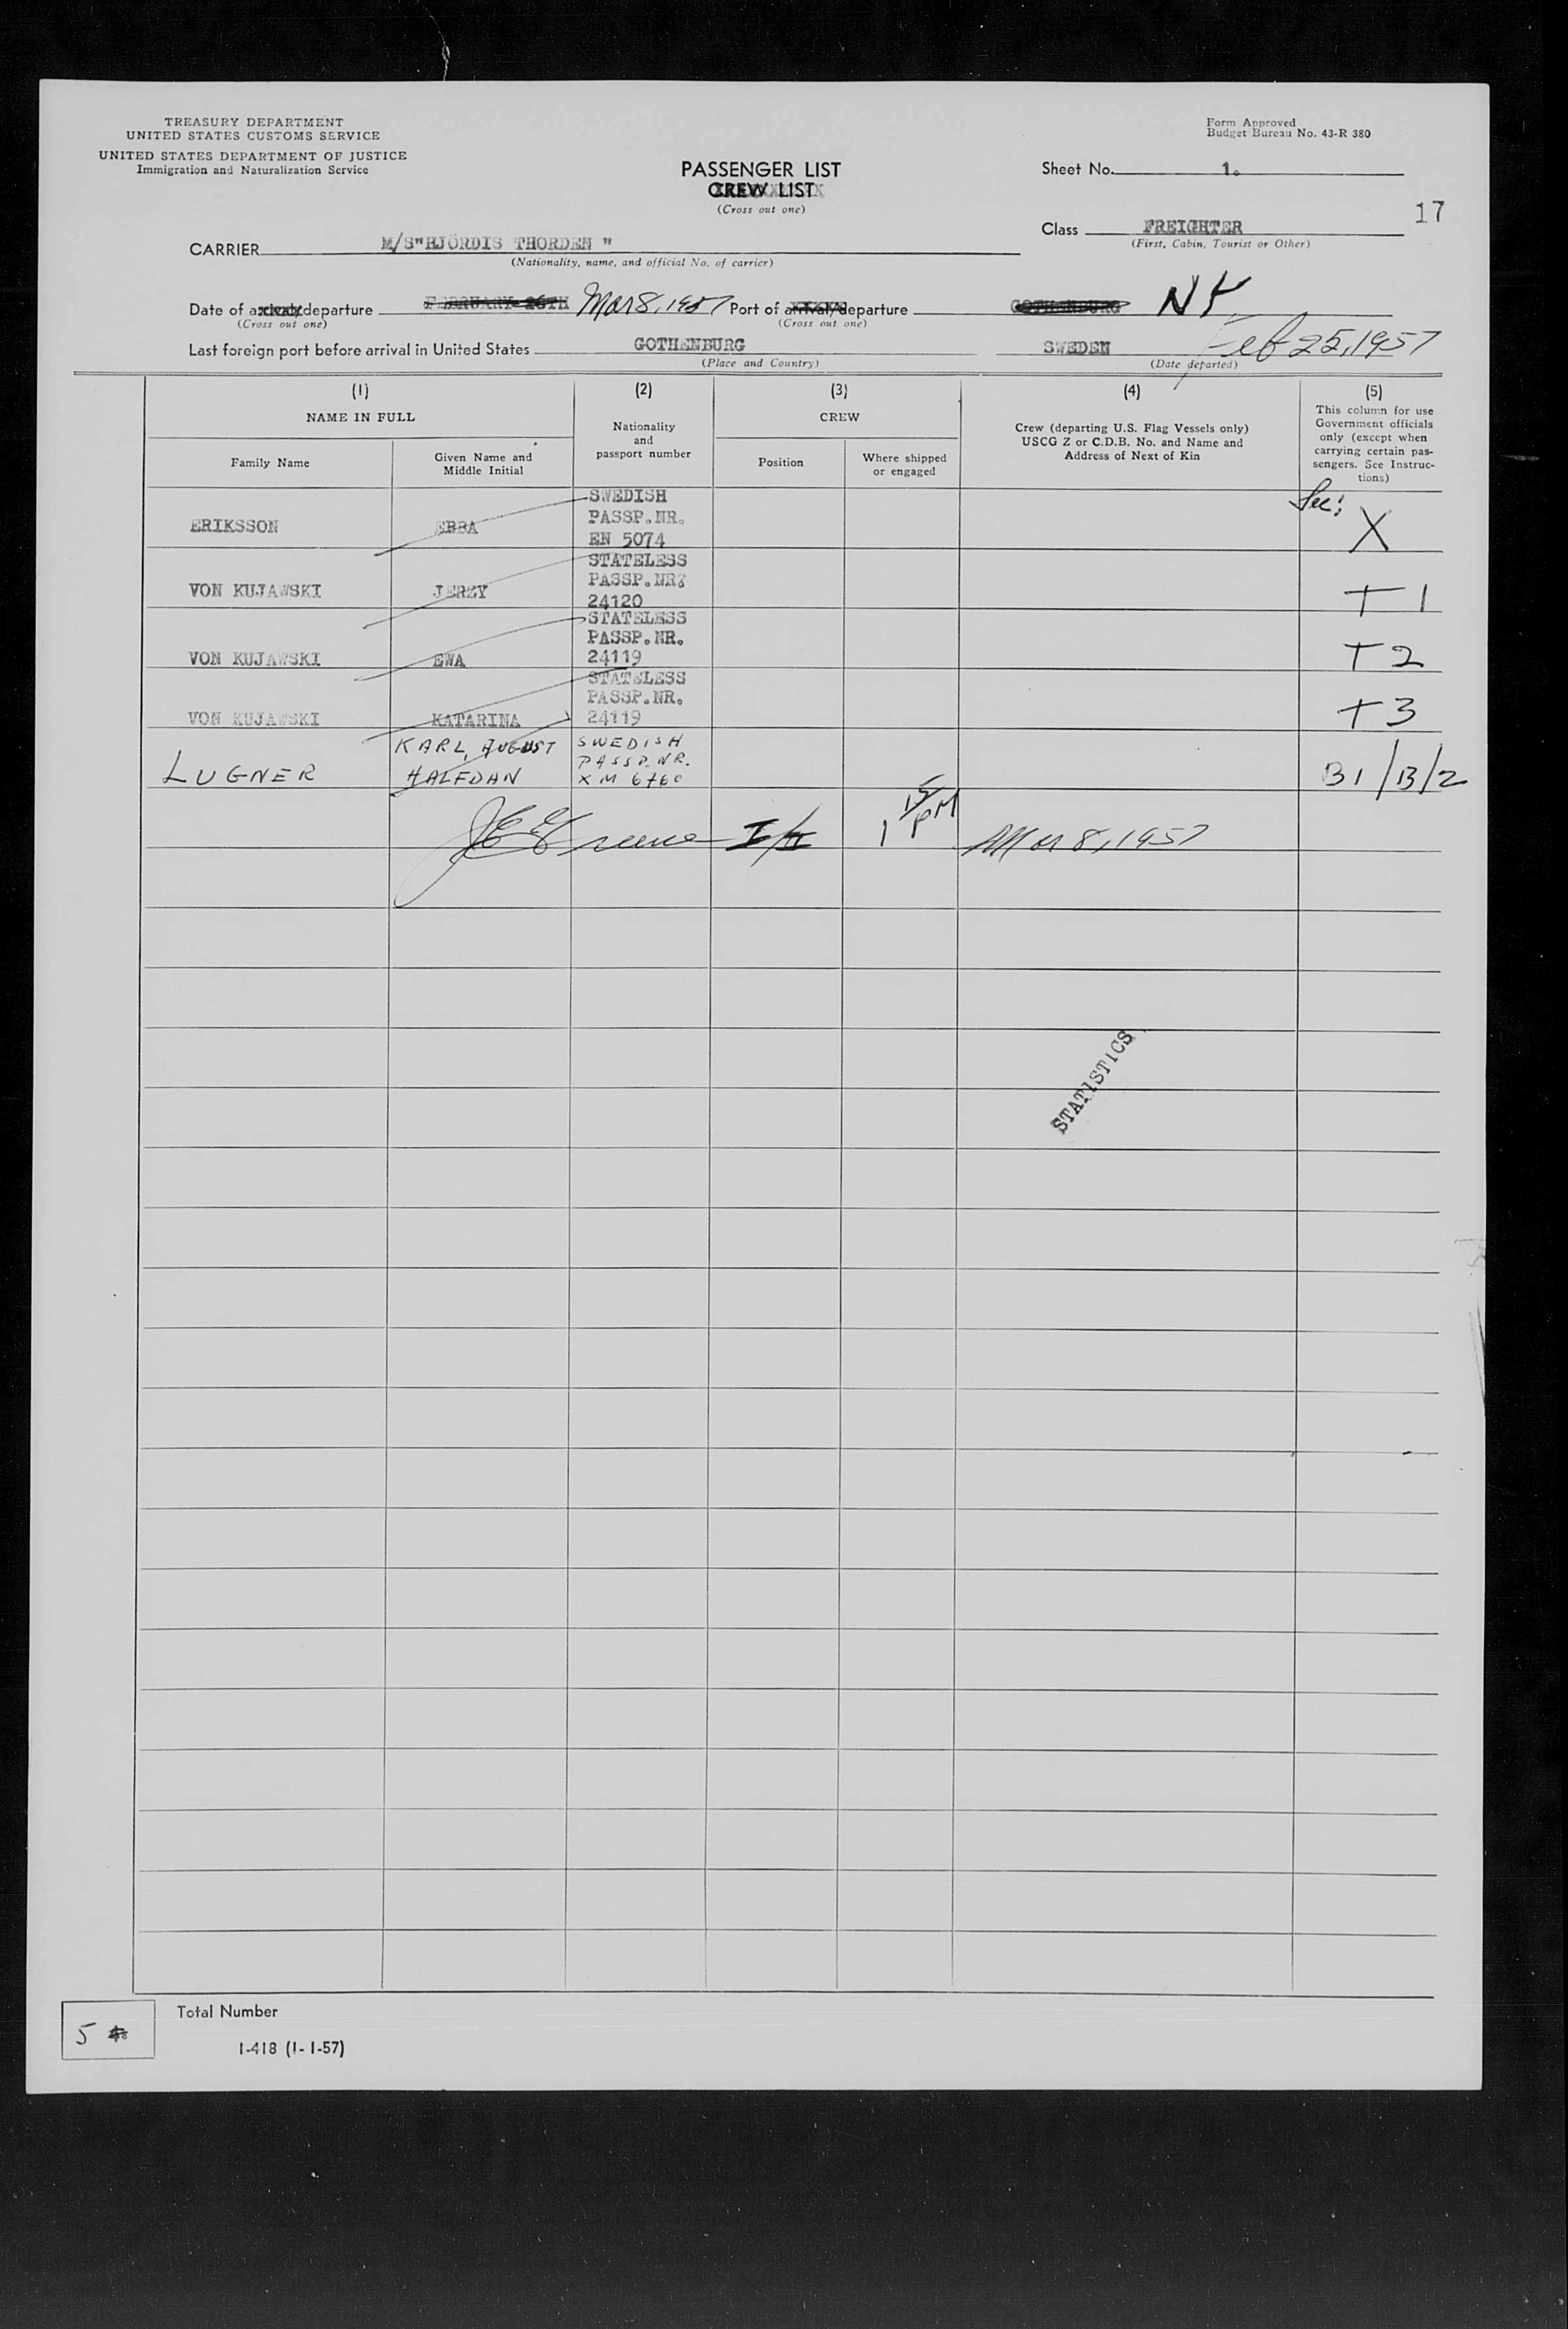 TREASURY DEPARTMENT
UNITED STATES CUSTOMS SERVICE
UNITED STATES DEPARTMENT OF JUSTICE
Immigration and Naturalization Service
Form Approved
Budget Bureau No. 43-R 380
PASSENGER LIST
CREW LIST
(Cross out one)
Sheet No. 1.
17
Class FREIGHTER
(First, Cabin, Tourist or Other)
CARRIER M/S"HJÖRDIS THORDEN "
(Nationality, name, and official No. of carrier)
Date of arrival/departure FEBRUARY 26TH Mar 8, 1957 Port of arrival/departure GOTHENBURG NY
(Cross out one) (Cross out one)
Last foreign port before arrival in United States GOTHENBURG SWEDEN Feb 25, 1957
(Place and Country) (Date departed)
(1) (2) (3) (4) (5)
NAME IN FULL
Nationality
and
passport number
CREW
Crew (departing U.S. Flag Vessels only)
USCG Z or C.D.B. No. and Name and
Address of Next of Kin
This column for use
Government officials
only (except when
carrying certain pas-
sengers. See Instruc-
tions)
Family Name
Given Name and
Middle Initial
Position
Where shipped
or engaged
Sec:
ERIKSSON EBBA SWEDISH
PASSP.NR.
EN 5074
X
VON KUJAWSKI JERZY STATELESS
PASSP.NR:
24120
T 1
VON KUJAWSKI EWA STATELESS
PASSP.NR.
24119
T 2
VON KUJAWSKI KATARINA STATELESS
PASSP.NR.
24119
T 3
LUGNER KARL AUGUST
HALFDAN
SWEDISH
PASSP.NR.
XM 6760
B1/B/2
1 15 PM Mar 8, 1957
STATISTICS
5
Total Number
I-418 (1-1-57)